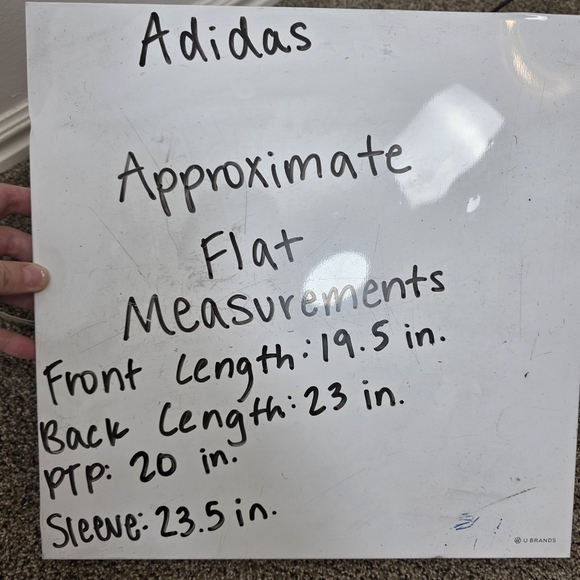 Adidas
Approximate
Flat
Measurements
Front Length: 19.5 in.
Back Length: 23 in.
PTP: 20 in.
Sleeve: 23.5 in.
U BRANDS